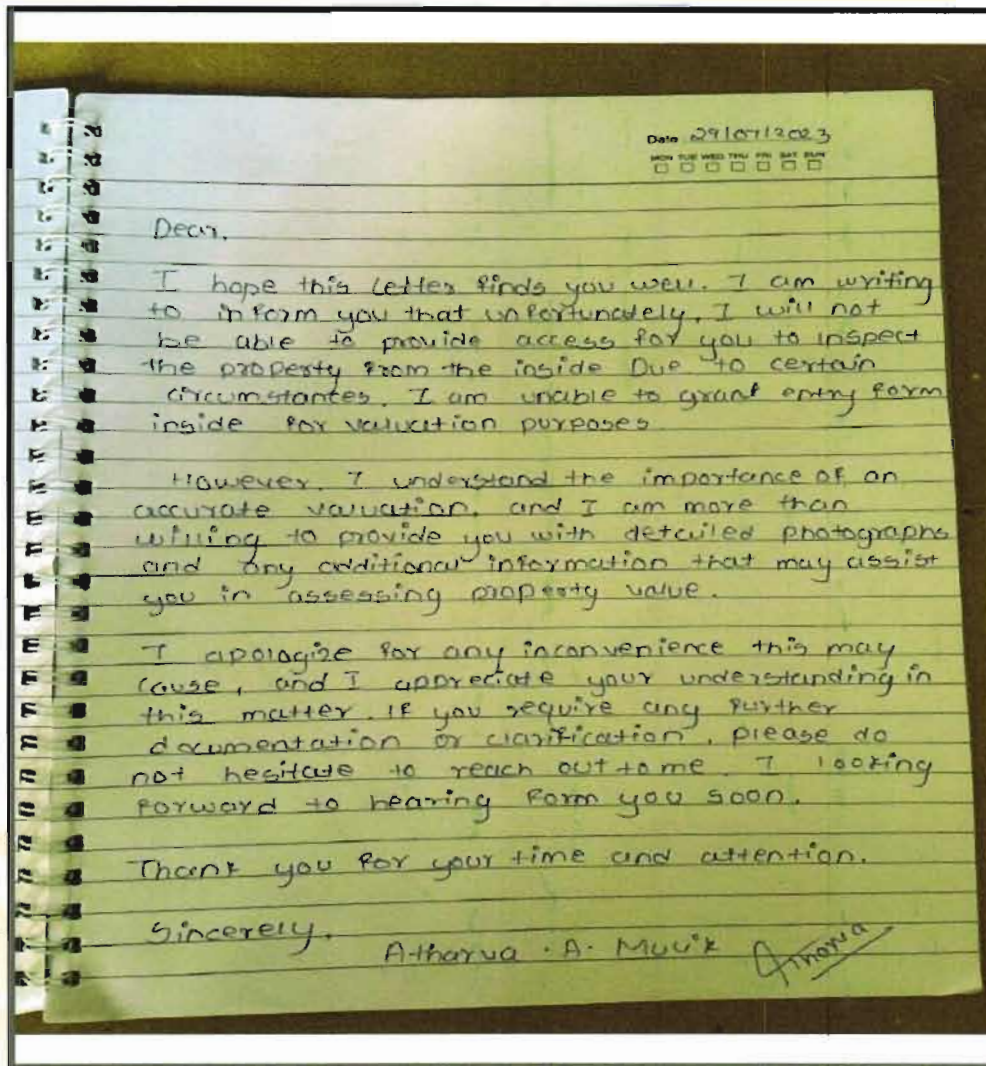 Date 29/07/2023
MON TUE WED THU FRI SAT SUN
Dear,
I hope this Letter finds you well. I am writing
to inform you that unfortunately, I will not
be able to provide access for you to inspect
the property from the inside Due to certain
circumstances, I am unable to grant entry form
inside for valuation purposes
However, I understand the importance of an
accurate valuation, and I am more than
willing to provide you with detailed photographs
and any additional information that may assist
you in assessing property value.
I apologize for any inconvenience this may
cause, and I appreciate your understanding in
this matter. If you require any further
documentation or clarification, please do
not hesitate to reach out to me. I looking
forward to hearing form you soon.
Thank you for your time and attention.
Sincerely,
Atharva . A. Mulik Atharva